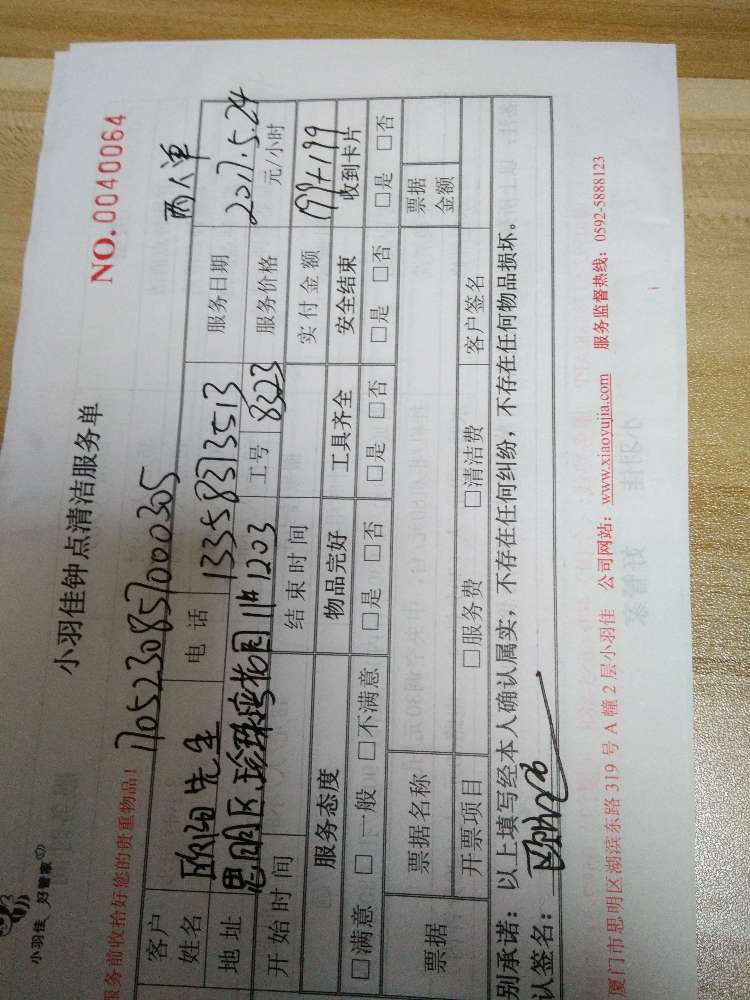 小羽佳 好管家
小羽佳钟点清洁服务单
NO.0040064
服务前收拾好您的贵重物品!
1705230857000305
两人单
客户姓名 欧阳先生 电话 13358313513 服务日期 2017.5.24
地址 思明区珍珠湾花园11#1203 工号 8323 服务价格 元/小时
开始时间 结束时间 实付金额 199+199
服务态度 物品完好 工具齐全 安全结束 收到卡片
□满意 □一般 □不满意 □是 □否 □是 □否 □是 □否 □是 □否
票据 票据名称 票据金额
开票项目 □服务费 □清洁费 客户签名
别承诺:以上填写经本人确认属实,不存在任何纠纷,不存在任何物品损坏。
认签名:
厦门市思明区湖滨东路319号A幢2层小羽佳 公司网站:www.xiaoyujia.com 服务监督热线:0592-5888123